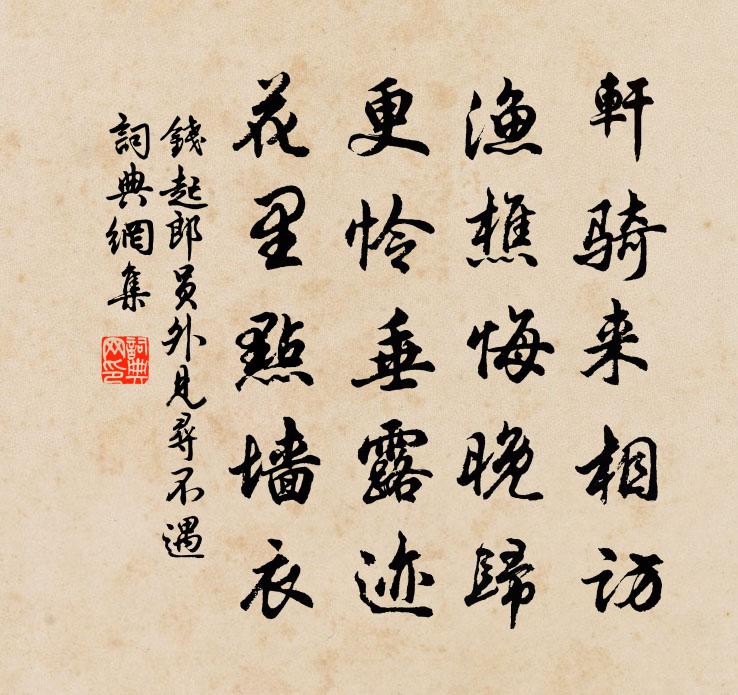 軒騎来相訪
漁樵悔晚歸
更怜垂露迹
花里點墙衣
錢起郎員外見尋不遇
詞典網集
詞典網印